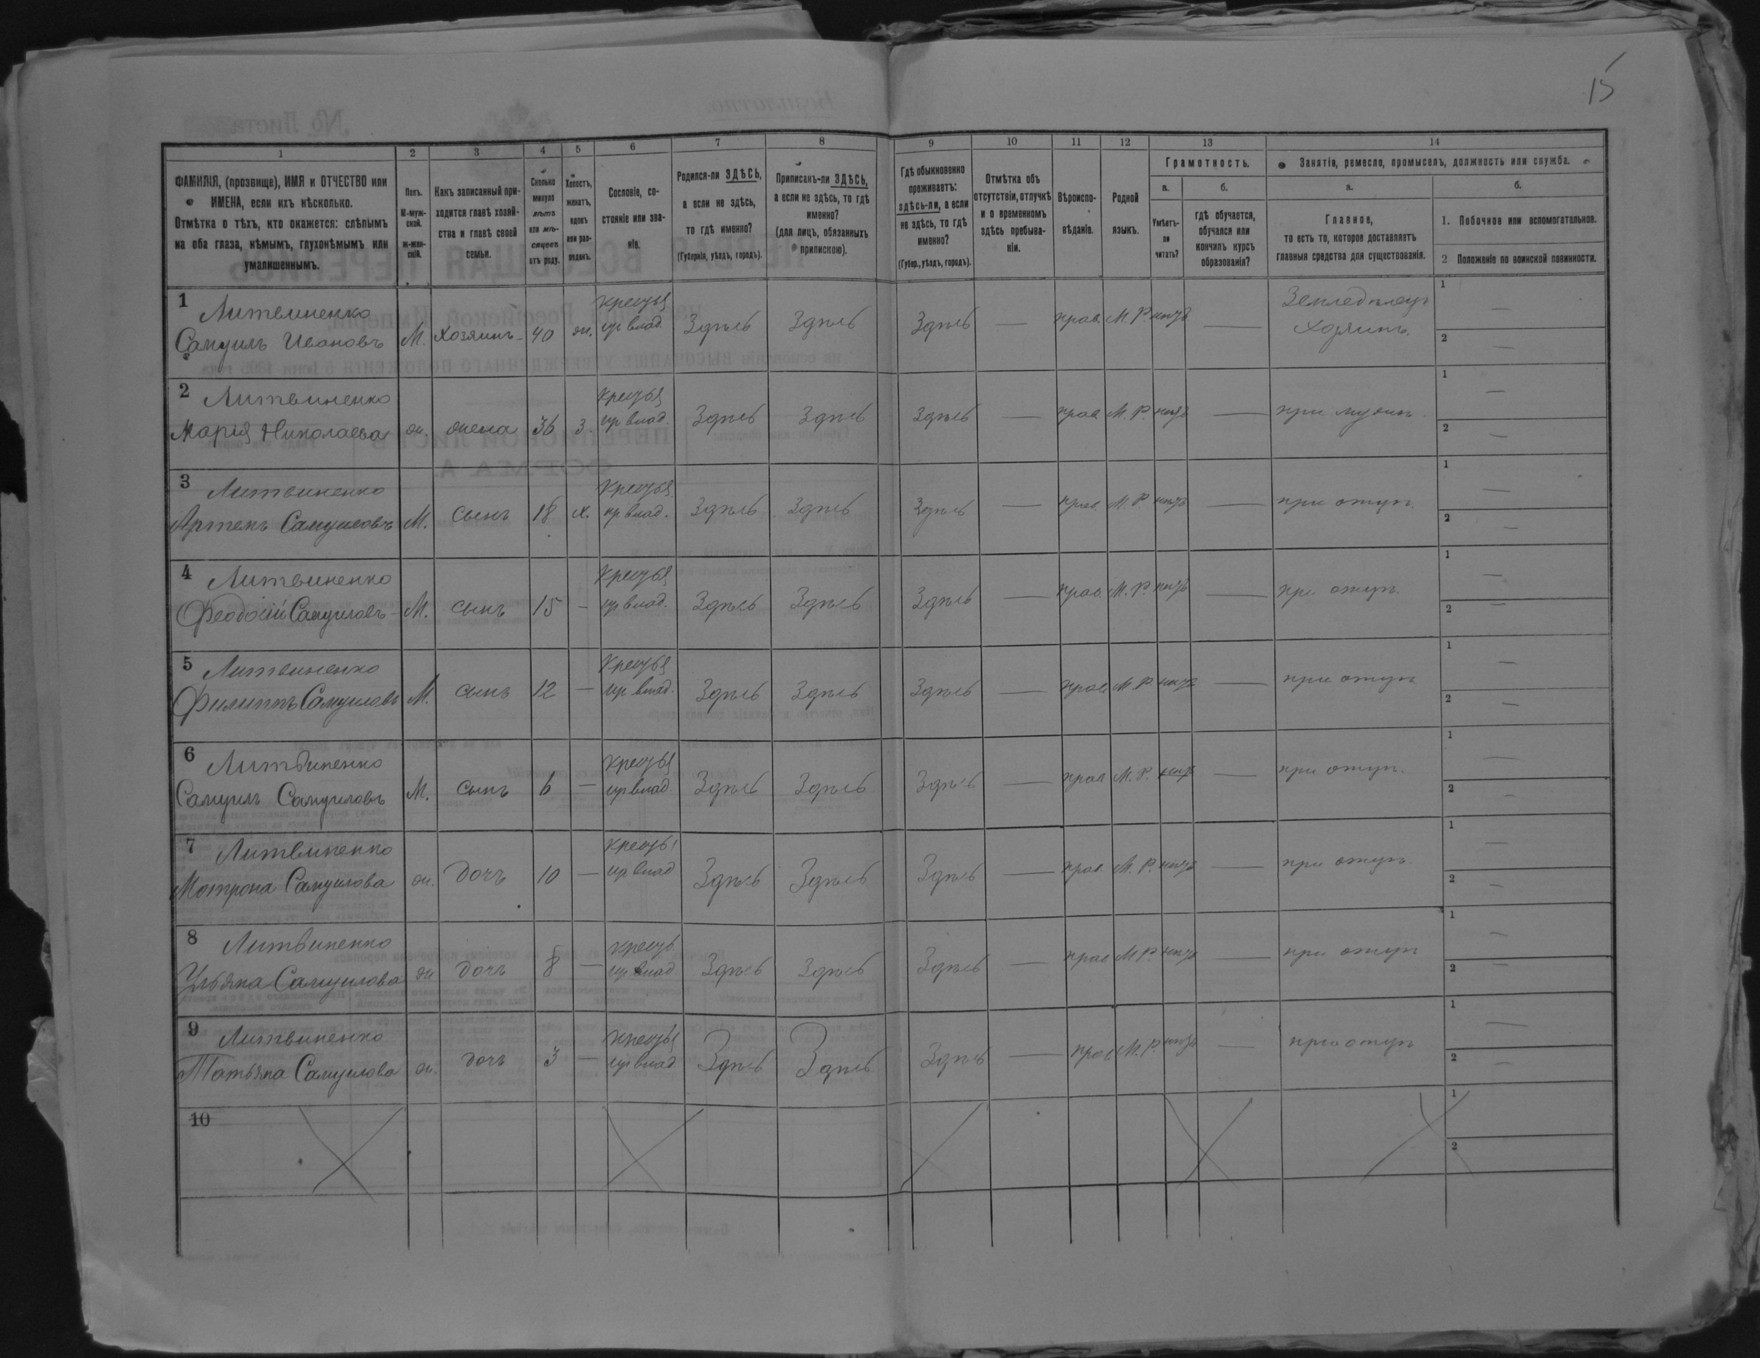 15
1 2 3 4 5 6 7 8 9 10 11 12 13 14
ФАМИЛІЯ, (прозвище), ИМЯ и ОТЧЕСТВО или
ИМЕНА, если ихъ нѣсколько.
Отмѣтка о тѣхъ, кто окажется: слѣпымъ
на оба глаза, нѣмымъ, глухонѣмымъ или
умалишеннымъ.
Полъ.
М-муж-
ской.
ж-жен-
скій.
Какъ записанный при-
ходится главѣ хозяй-
ства и главѣ своей
семьи.
Сколько
минуло
лѣтъ
или мѣ-
сяцевъ
отъ роду.
Холостъ,
женатъ,
вдовъ
или раз-
веденъ.
Сословіе, со-
стояніе или зва-
ніе.
Родился-ли ЗДѢСЬ,
а если не здѣсь,
то гдѣ именно?
(Губернія, уѣздъ, городъ).
Приписанъ-ли ЗДѢСЬ,
а если не здѣсь, то гдѣ
именно?
(для лицъ, обязанныхъ
припискою).
Гдѣ обыкновенно
проживаетъ:
здѣсь-ли, а если
не здѣсь, то гдѣ
именно?
(Губер., уѣздъ, городъ).
Отмѣтка объ
отсутствіи, отлучкѣ
и о временномъ
здѣсь пребыва-
ніи.
Вѣроиспо-
вѣданіе.
Родной
языкъ.
Грамотность.
а.
Умѣетъ-
ли
читать?
б.
гдѣ обучается,
обучался или
кончилъ курсъ
образованія?
Занятія, ремесло, промыселъ, должность или служба.
а.
Главное,
то есть то, которое доставляетъ
главныя средства для существованія.
б.
1. Побочное или вспомогательное.
2 Положеніе по воинской повинности.
1 Литвиненко
Самуилъ Ивановъ М. Хозяинъ 40 ж. Здѣсь Здѣсь Здѣсь — прав. М. Р. — Хозяинъ 1 — 2 —
2 Литвиненко
Марія Николаева ж. жена 36 з. Здѣсь Здѣсь Здѣсь — прав М. Р. — при мужѣ 1 — 2 —
3 Литвиненко
Артемъ Самуиловъ М. сынъ 18 х. Здѣсь Здѣсь Здѣсь — прав М. Р. — при отцѣ 1 — 2 —
4 Литвиненко
Феодосій Самуиловъ М. сынъ 15 — Здѣсь Здѣсь Здѣсь — прав. М. Р. — при отцѣ 1 — 2 —
5 Литвиненко
Филиппъ Самуиловъ М. сынъ 12 — Здѣсь Здѣсь Здѣсь — прав. М. Р. — при отцѣ 1 — 2 —
6 Литвиненко
Самуилъ Самуиловъ М. сынъ 6 — Здѣсь Здѣсь Здѣсь — прав М. Р. — при отцѣ 1 — 2 —
7 Литвиненко
Мотрона Самуилова ж. дочь 10 — Здѣсь Здѣсь Здѣсь — прав. М. Р. — при отцѣ 1 — 2 —
8 Литвиненко
Ульяна Самуилова ж дочь 8 — Здѣсь Здѣсь Здѣсь — прав М. Р. — при отцѣ 1 — 2 —
9 Литвиненко
Татьяна Самуилова ж. дочь 3 — Здѣсь Здѣсь Здѣсь — прав М. Р. — при отцѣ 1 — 2 —
10 1 2